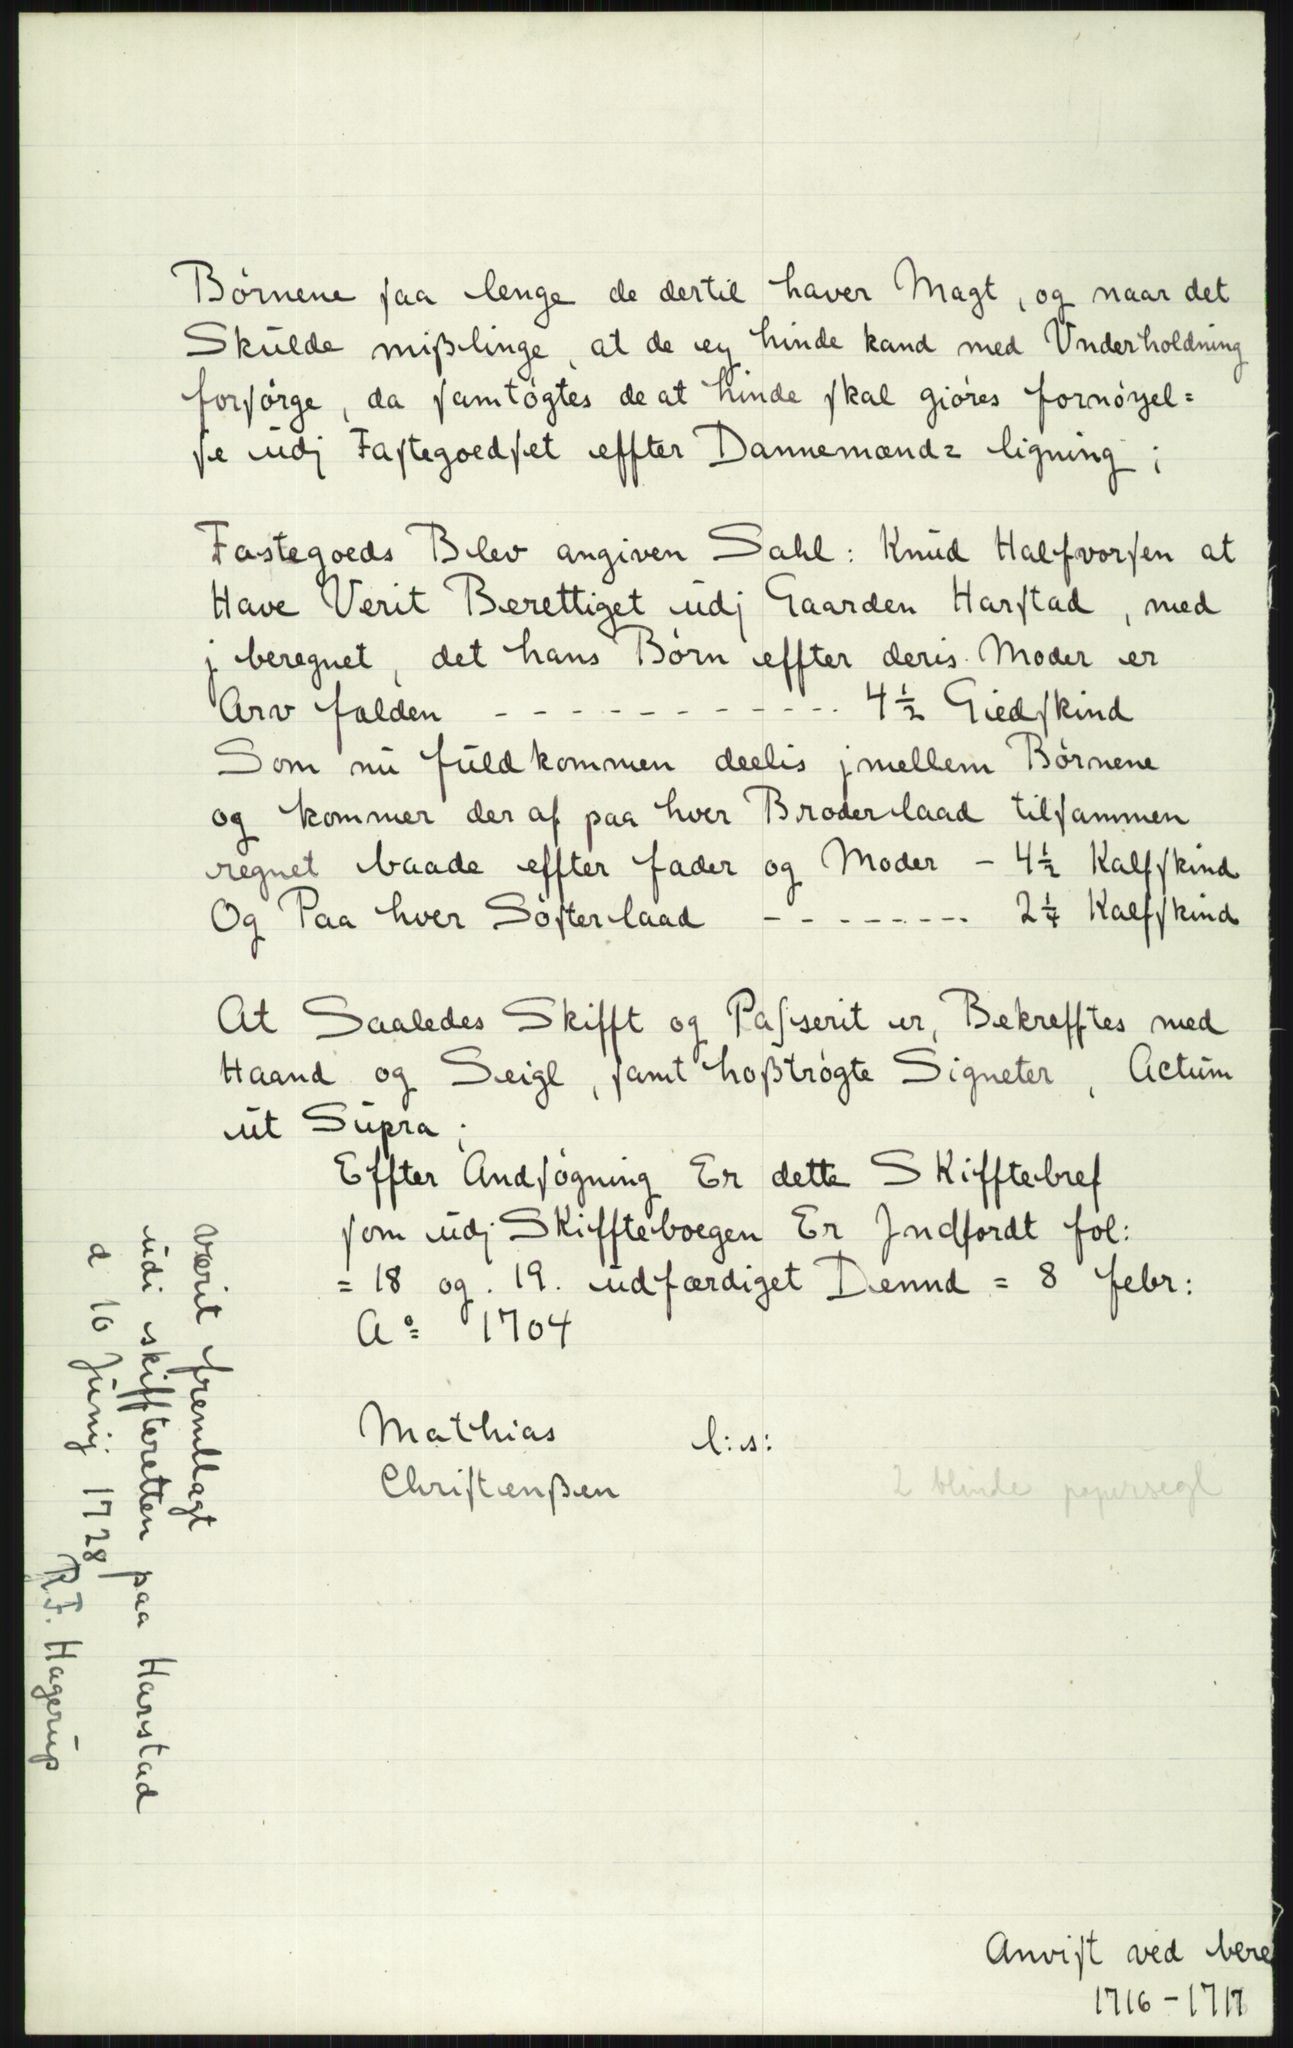 Børnene saa lenge de dertil haver Magt, og naar det
Skulde mißlinge, at de ey hinde kand med Vnderholdning
forsørge, da samtøgtes de at hinde skal giøres fornøyel=
se udj Fastegoedset effter Dannemænd= ligning;
Fastegoeds Blev angiven Sahl: Knud Halfvorsen at
Have Verit Berettiget udj Gaarden Harstad, med
j beregnet, det hans Børn effter deris Moder er
Arv falden - - - - - - - - - - - - 4 1/2 Giedskind
Som nu fuldkommen deelis jmellem Børnene
og kommer der af paa hver Broderlaad tilsammen
regnet baade effter fader og Moder - 4 1/2 Kalfskind
Og Paa hver Søsterlaad - - - - - - - - 2 1/4 Kalfskind
At Saaledes Skifft og Passerit er, Bekrefftes med
Haand og Seigl, samt hoßtrøgte Signeter, Actum
ut Supra;
Effter Andsøgning Er dette Skifftebref
som udj Skiffteboegen Er Jndfordt fol:
= 18 og. 19. udfærdiget Dennd = 8 febr:
Ao= 1704
Mathias l:s:
Christenßen
2 blinde papirsegl
Værit fremllagt
udi skiffteretten paa Harstad
d 10 Junij 1728
R.F. Hagerup
Anvist ved bere
1716-1717